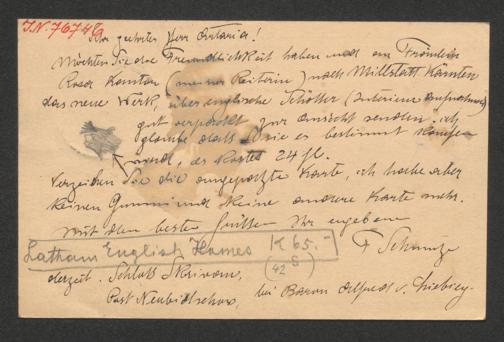 I.N. 76746
Sehr geehrter Herr Artaria!
Möchten Sie die Freundlichkeit haben und an Fräulein
Rosa Kantor (meiner Reiterin) nach Millstatt Kärnten
das neue Werk, über englische Schlösser (Interieur Aufnahmen)
gut verpackt zur Ansicht senden. ich
glaube dass sie es bestimmt kaufen
wird, es kostet 24 fl.
Verzeihen Sie die angepatzte Karte, ich habe aber
keinen Gummi und keine andere Karte mehr.
Mit den besten Grüßen Ihr ergebener
Latham English Homes K 65.-
(42 S)
derzeit. Schloß Skrivan,
Post Neubidschow, bei Baron Alfred v. Liebieg.